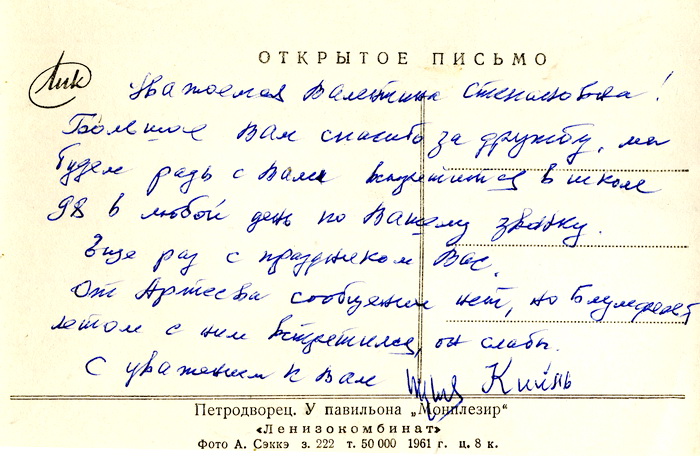 ОТКРЫТОЕ ПИСЬМО
Лик
Уважаемая Валентина !
Большое Вам спасибо за дружбу, мы
будем рады с Вами встретится в школе
98 в любой день по Вашему звонку.
Еще раз с праздником Вас.
От Артеева сообщений нет, но
летом с ним встретился, он слабы.
С уважением к Вам Киянь
Петродворец. У павильона „Монплезир“
«Ленизокомбинат»
Фото А. Сэккэ з. 222 т. 50 000 1961 г. ц. 8 к.